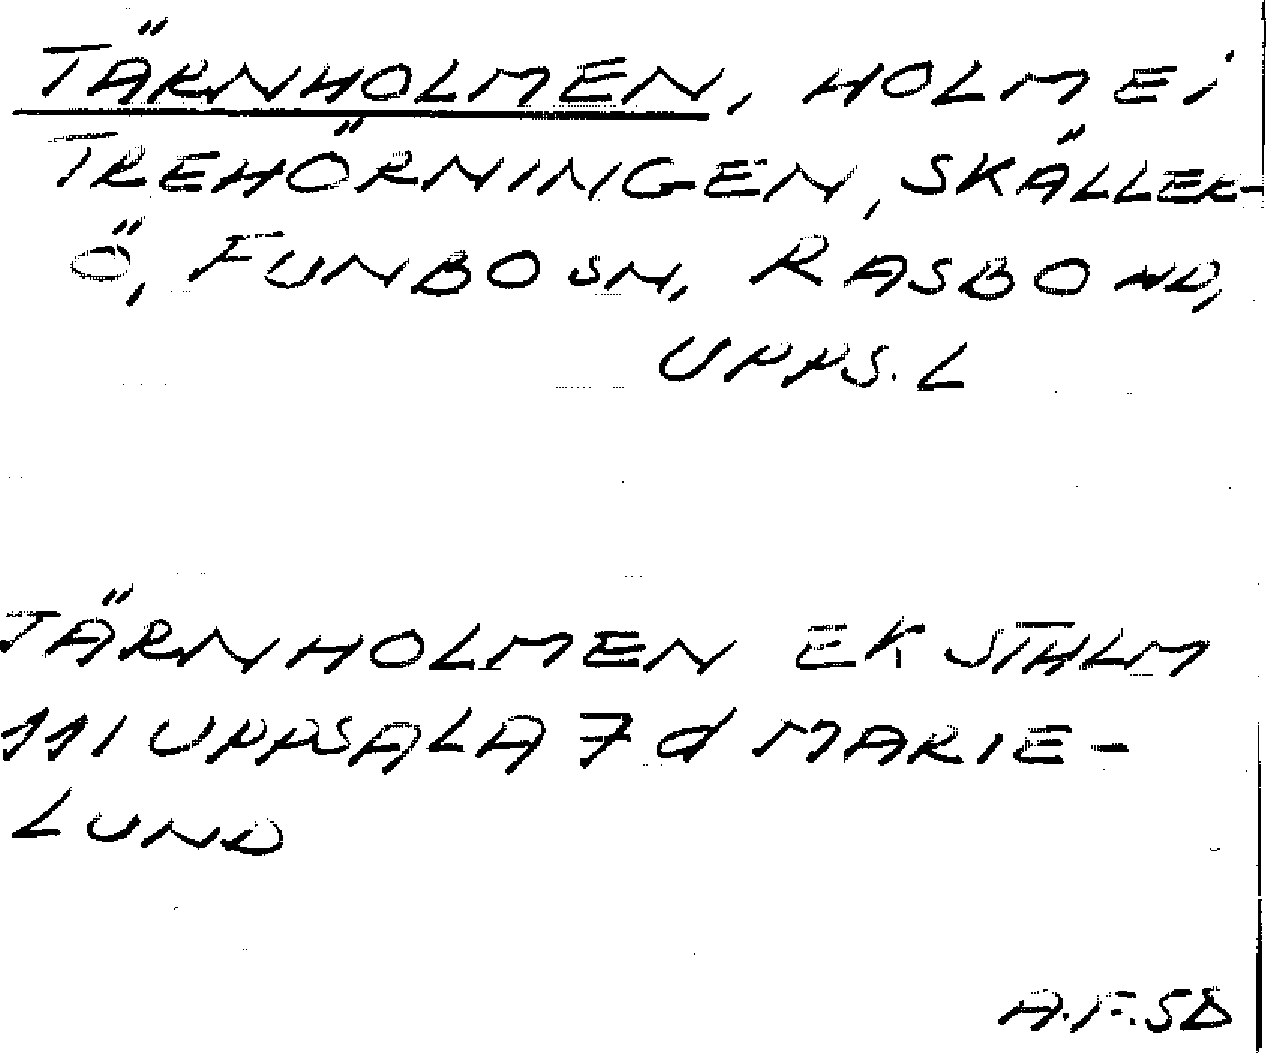 TÄRNHOLMEN, HOLME I
TREHÖRNINGEN, SKÄLLER-
Ö, FUNBO SN, RASBO HD,
UPPS. L
TÄRNHOLMEN EK STHLM
111 UPPSALA 7 d MARIE-
LUND
A.F.SD